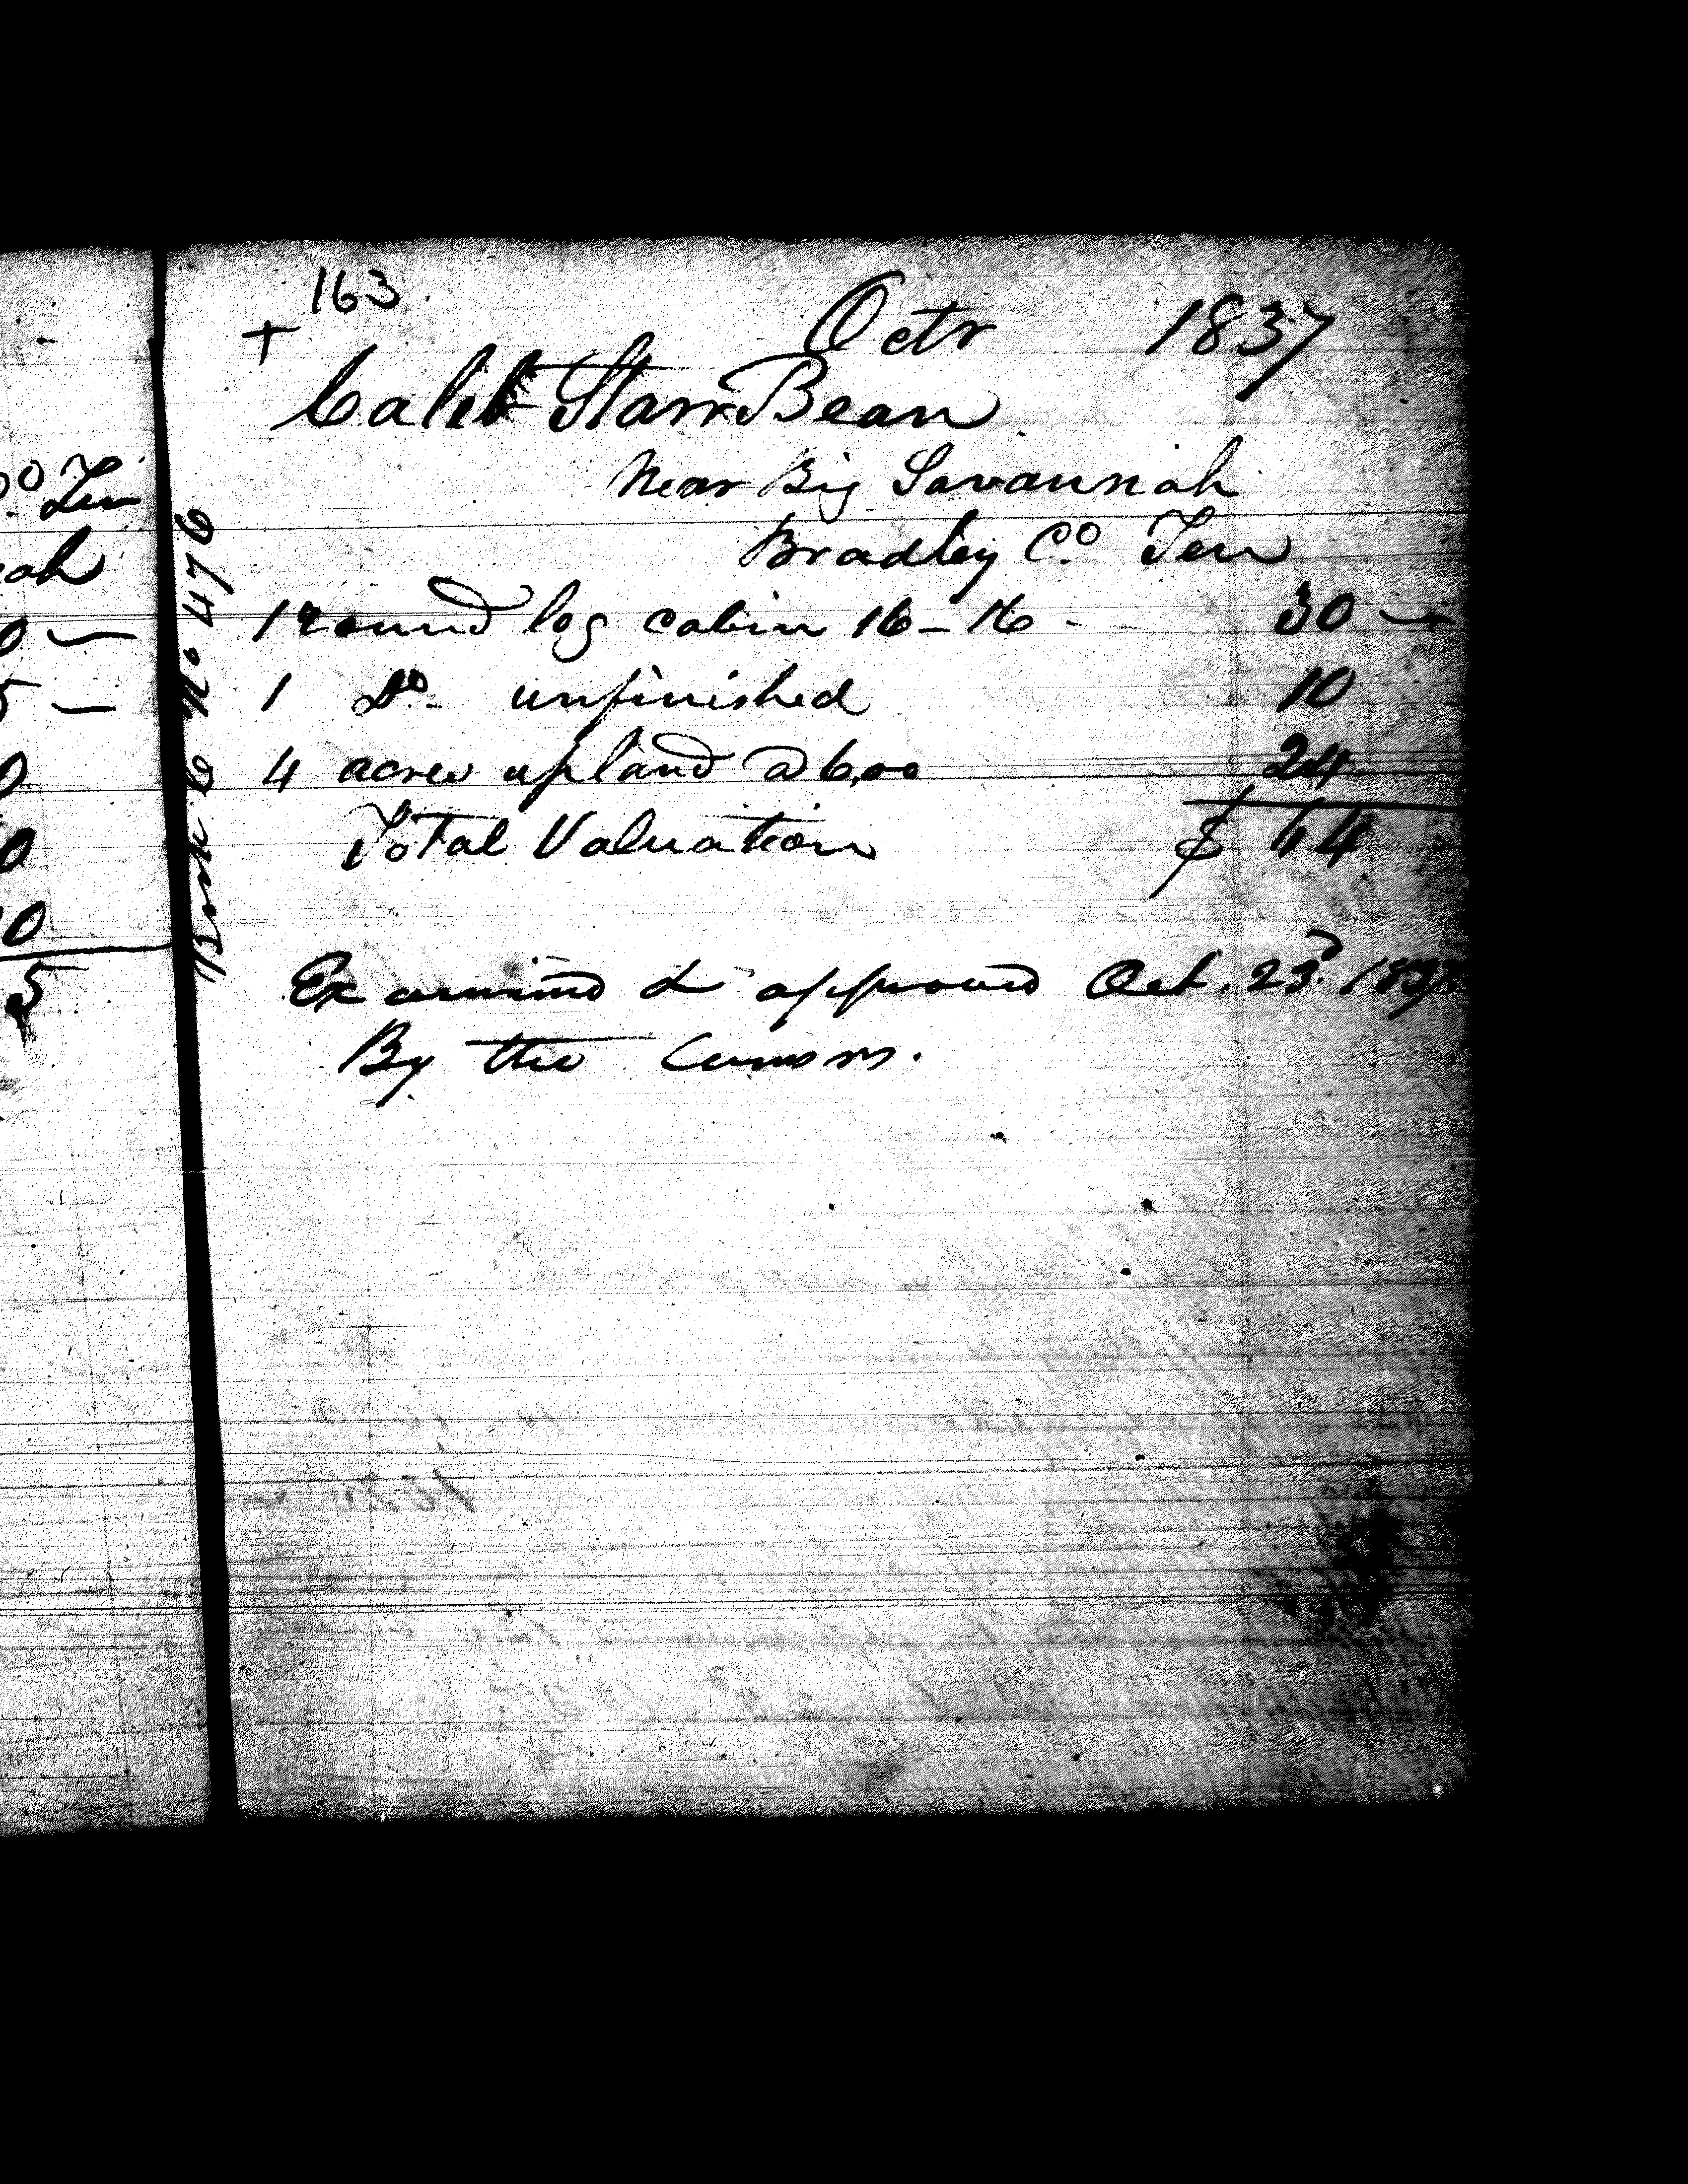 163
+ Octr 1837
Caleb Starr Bean
Near Big Savannah
Bradley Co. Ten
1 round log cabin 16 - 16 - 30 —
1 Do. unfinished 10
4 acres upland @ 6,00 24
Total Valuation $ 64
Examined & approved Oct. 23d. 1837.
By the Comsrs.
Book 6 No. 476
o. Ten
ah
0 —
5 —
0
0
0
5